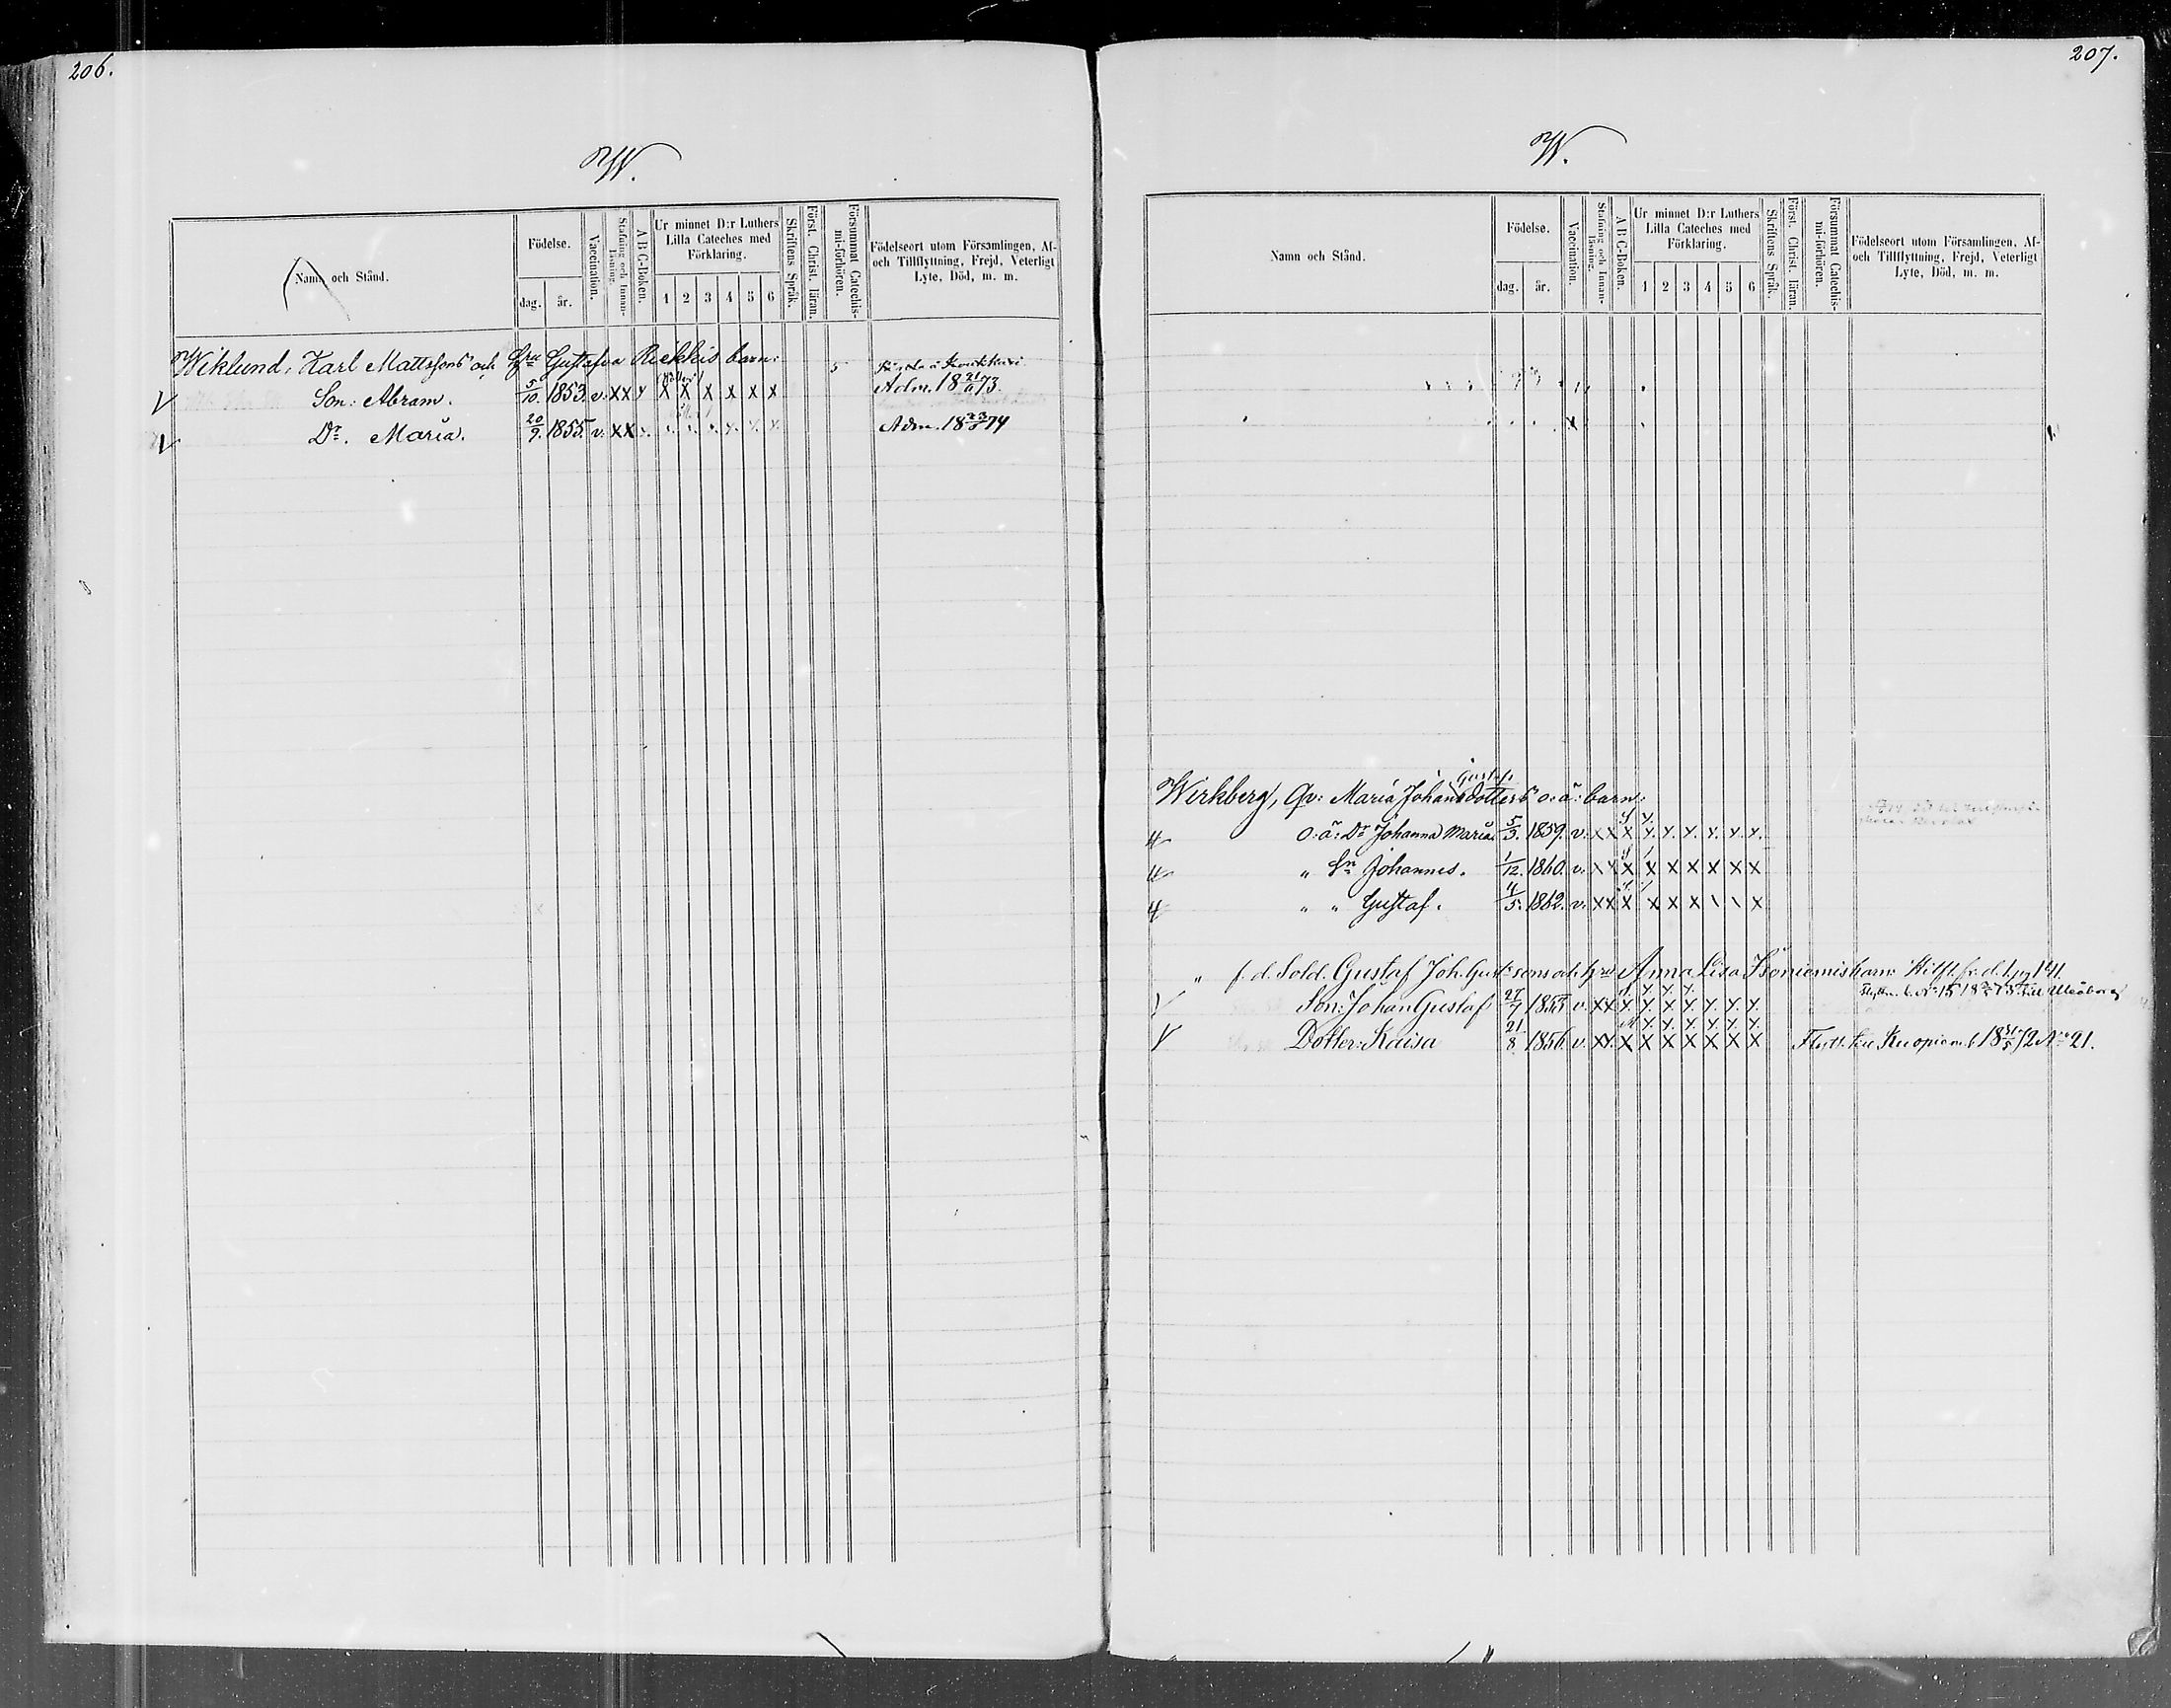 206.
W.
Namn och Stånd.
Födelse.
dag. år.
Vaccination.
Stafning och Innanläsning.
A B C-Boken.
Ur minnet D:r Luthers Lilla Cateches med Förklaring.
1 2 3 4 5 6
Skriftens Språk.
Först. Christ. läran.
Försummat Catechismi-förhören.
Födelseort utom Församlingen, Af- och Tillflyttning, Frejd, Veterligt Lyte, Död, m. m.
Wiklund, Karl Mattssons och Hru Gustafva Riekkis barn: 5
V Son: Abram. 5/10. 1853. v. X X X X X X X X X Adm. 18 21/6 73.
V Dr. Maria. 20/9. 1855. v. X X Adm. 18 23/5 74
207.
W.
Namn och Stånd.
Födelse.
dag. år.
Vaccination.
Stafning och Innanläsning.
A B C-Boken.
Ur minnet D:r Luthers Lilla Cateches med Förklaring.
1 2 3 4 5 6
Skriftens Språk.
Först. Christ. läran.
Försummat Catechismi-förhören.
Födelseort utom Församlingen, Af- och Tillflyttning, Frejd, Veterligt Lyte, Död, m. m.
Gustafs
Wirkberg, Qv: Maria Johansdotters o: ä: barn:
4 o: ä: Dr Johanna Maria. 5/3. 1859. v. X X X X X X X X X
4 " Sn Johannes. 1/12. 1860. v. X X X X X X X X X
4 " " Gustaf. 4/5. 1862. v. X X X X X X \ \ X
" f. d. Sold. Gustaf Joh. Gust:sons och Hru Anna Lisa Isoniemis barn: pag 141.
V Son: Johan Gustaf 27/7 1853 v. X X X X X X X X X till Uleåborg
V Dotter: Kaisa 21/8 1856. v. X X. X X X X X X X Flytt. till Kuopio m. b. 18 31/5 72 No 21.